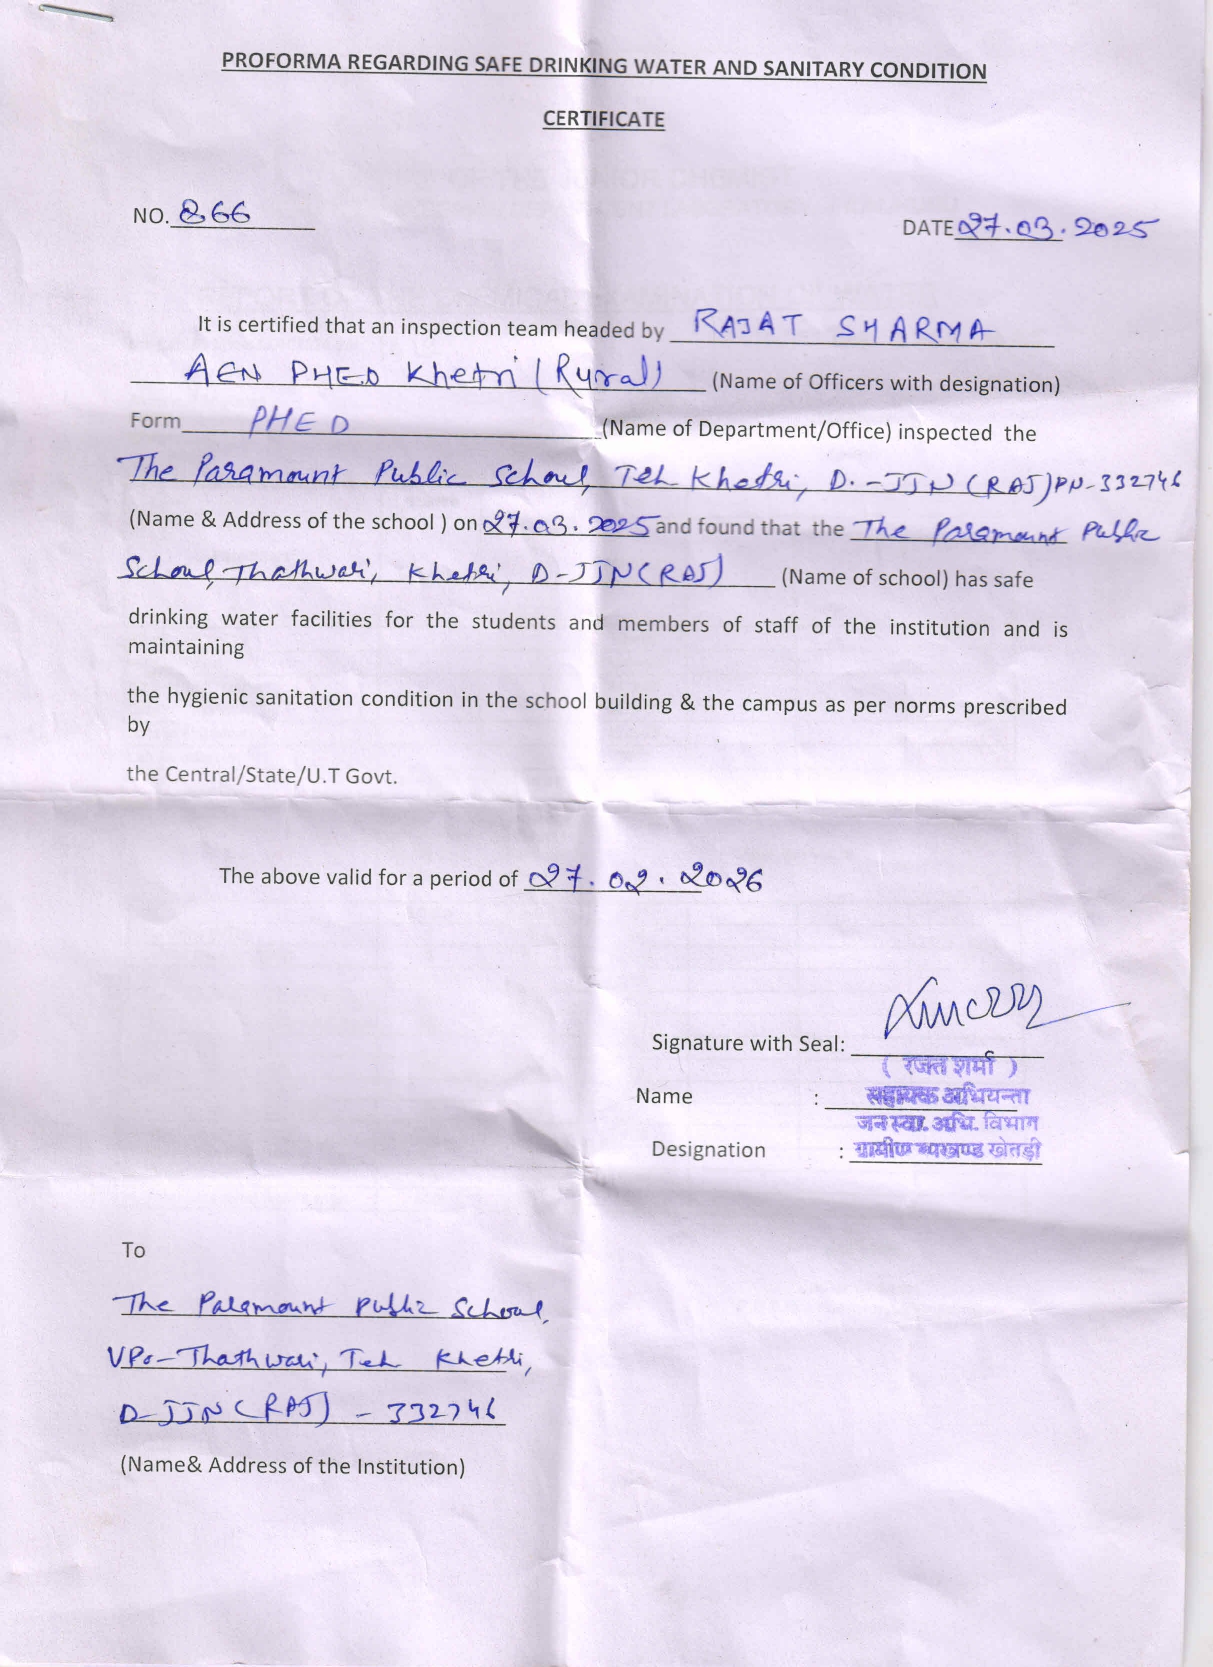 PROFORMA REGARDING SAFE DRINKING WATER AND SANITARY CONDITION
CERTIFICATE
NO. 866
DATE 27.03.2025
It is certified that an inspection team headed by RAJAT SHARMA
AEN PHED Khetri (Rural) (Name of Officers with designation)
Form PHED (Name of Department/Office) inspected the
The Paramount Public School, Teh Khetri, D.-JJN (RAJ) PN-332746
(Name & Address of the school ) on 27.03.2025 and found that the The Paramount Public
School, Thathwari, Khetri, D-JJN (RAJ) (Name of school) has safe
drinking water facilities for the students and members of staff of the institution and is
maintaining
the hygienic sanitation condition in the school building & the campus as per norms prescribed
by
the Central/State/U.T Govt.
The above valid for a period of 27.02.2026
Signature with Seal:
( रजत शर्मा )
Name : सहायक अभियन्ता
जन स्वा. अभि. विभाग
Designation : ग्रामीण उपखण्ड खेतड़ी
To
The Paramount Public School,
VPO-Thathwari, Teh Khetri,
D-JJN (RAJ) - 332746
(Name& Address of the Institution)